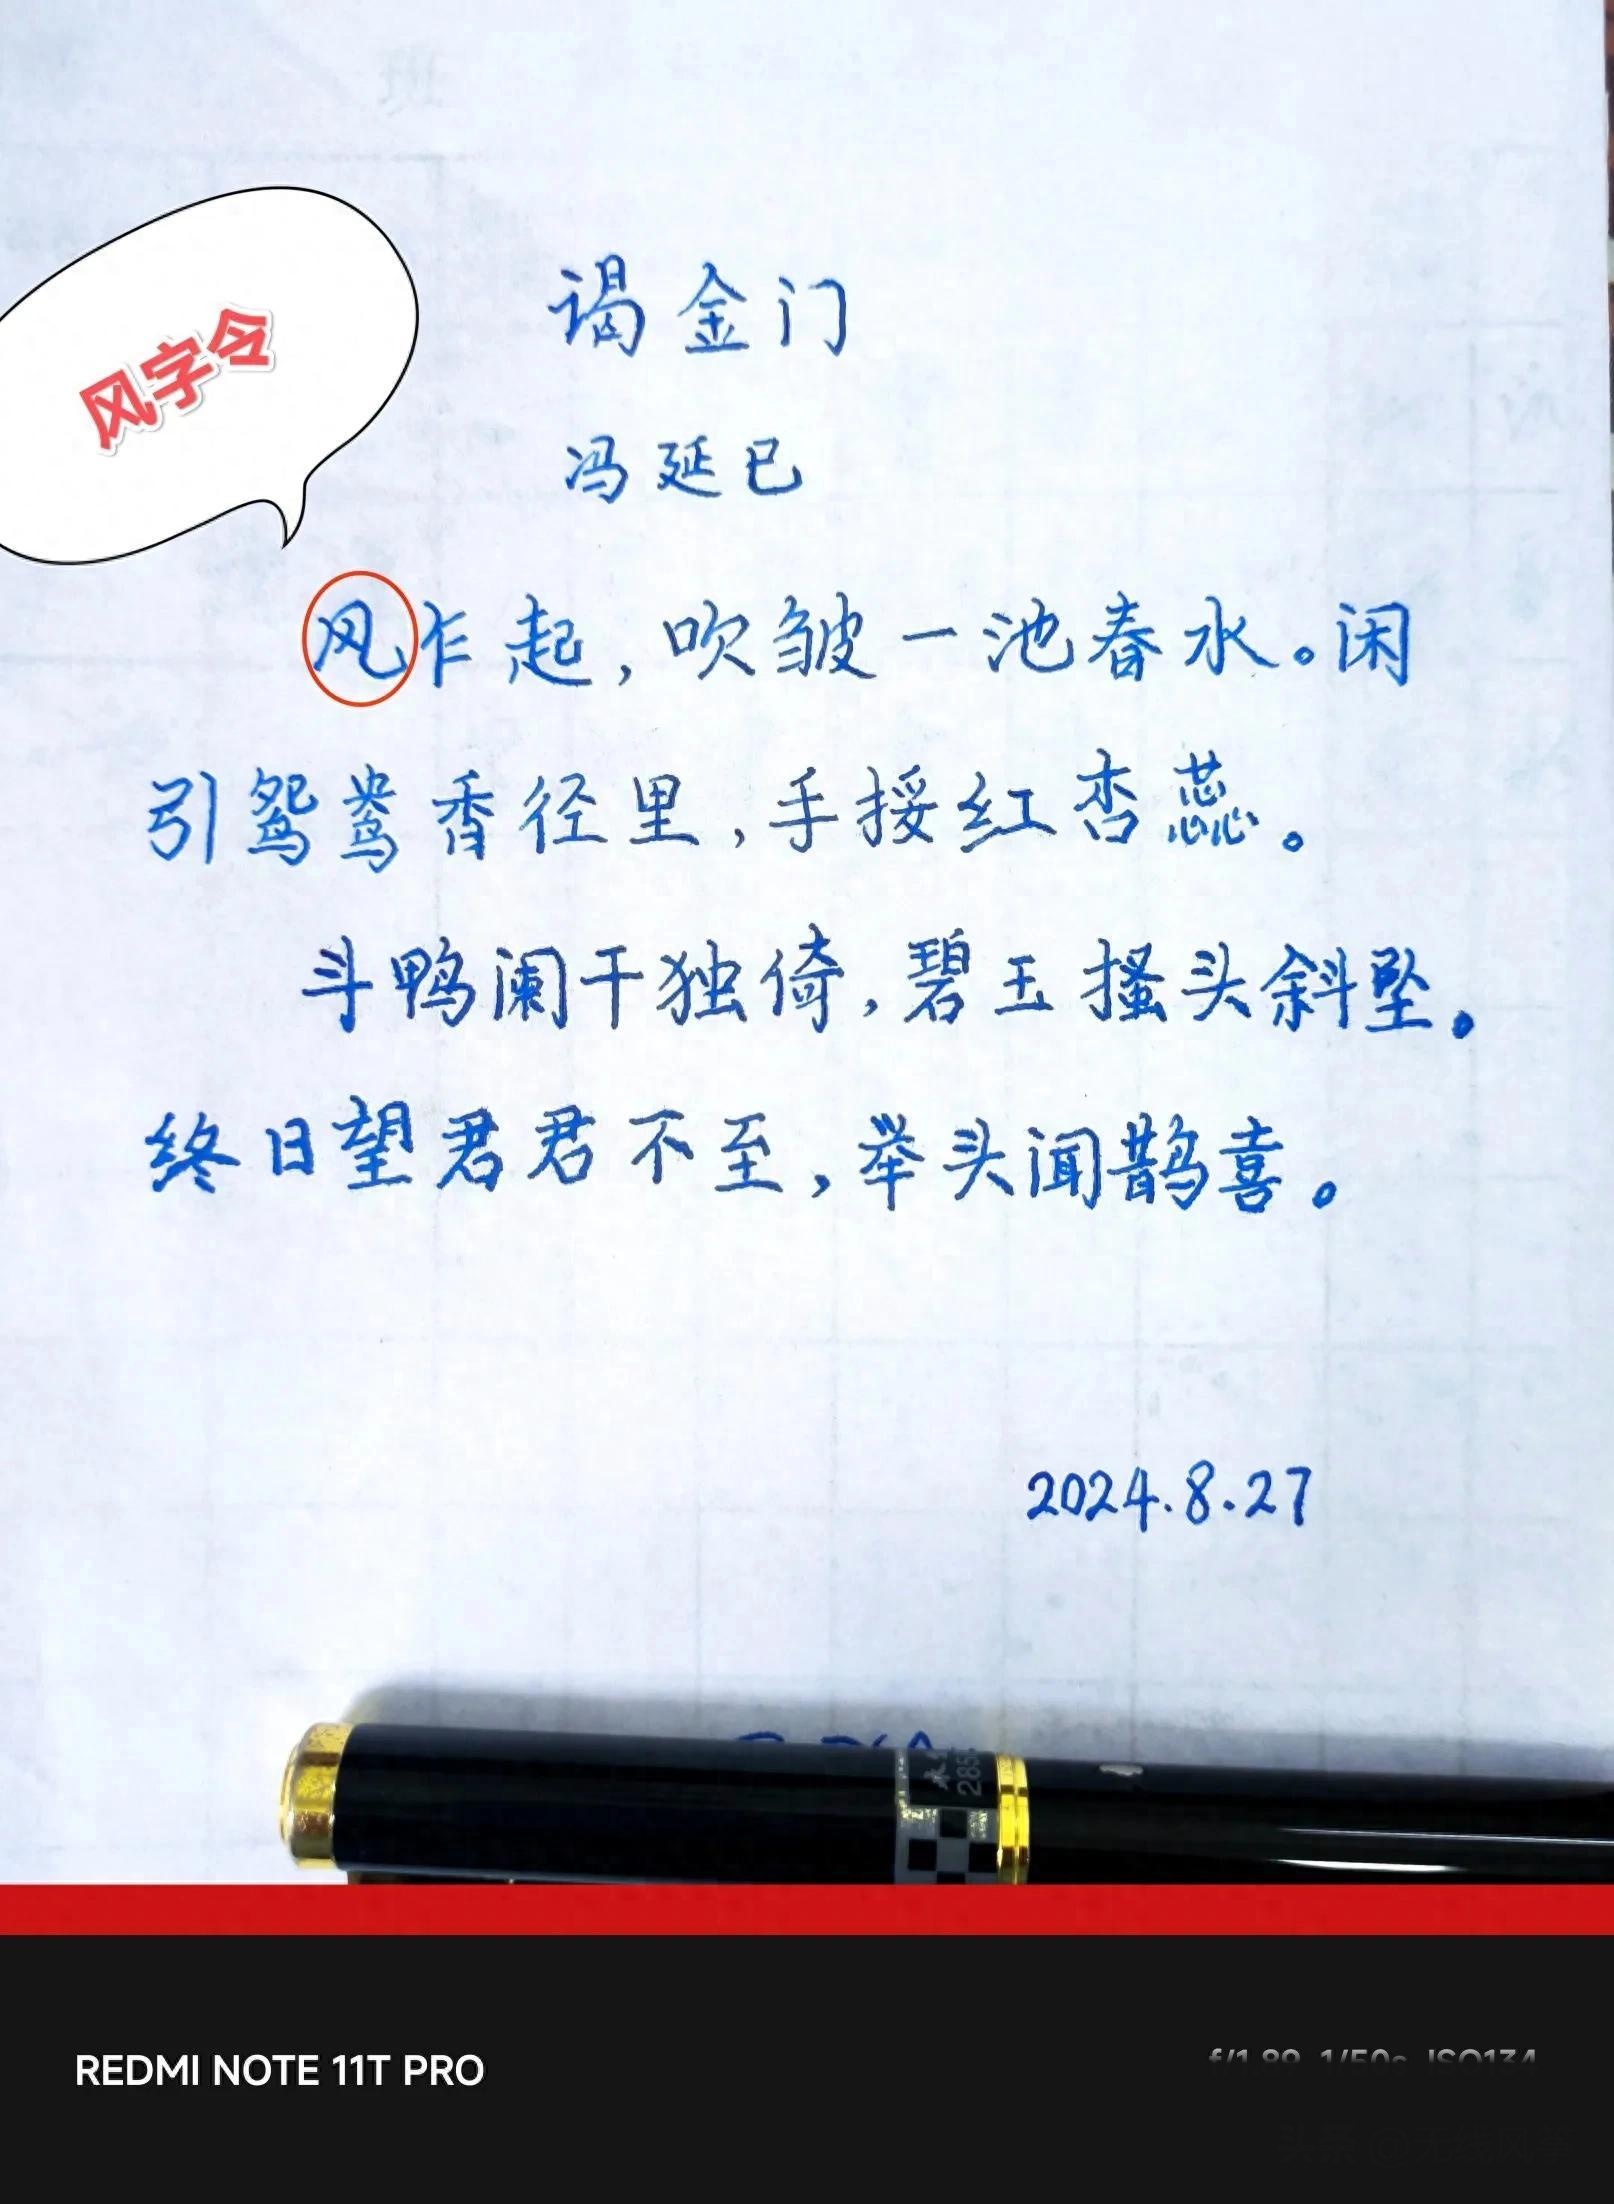 风字令
谒金门
冯延巳
风乍起，吹皱一池春水。闲
引鸳鸯香径里，手挼红杏蕊。
斗鸭阑干独倚，碧玉搔头斜坠。
终日望君君不至，举头闻鹊喜。
2024.8.27
285
REDMI NOTE 11T PRO
f/1.89 1/50s ISO134